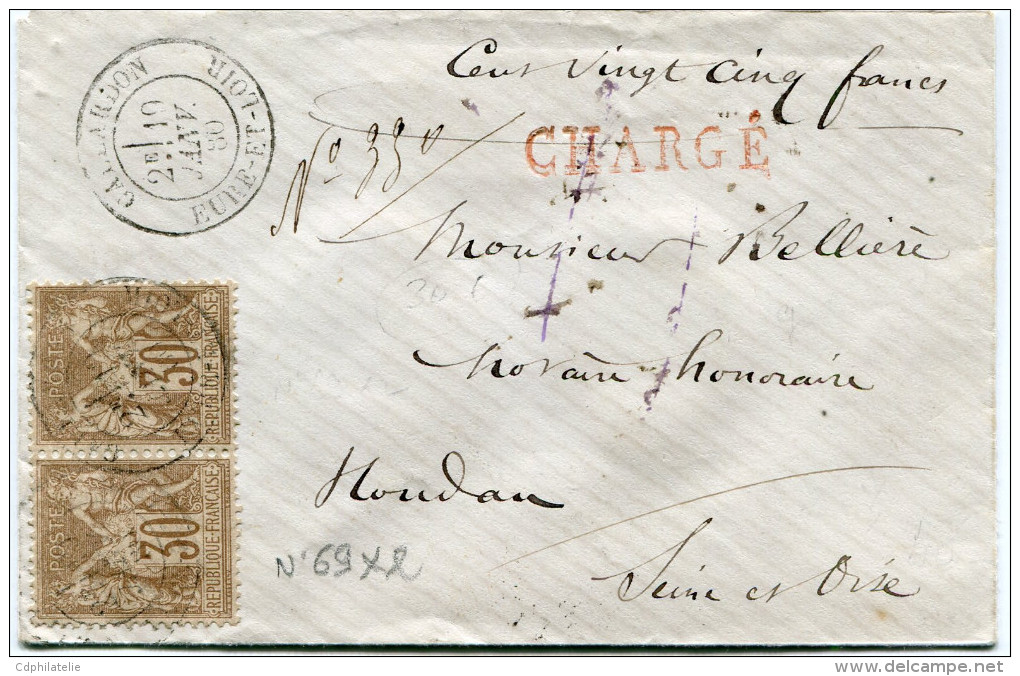 Cent Vingt Cinq francs
GALLARDON
2E 19
JANV.
80
EURE-ET-LOIR
No 330
CHARGÉ
Monsieur Bellière
Notaire honoraire
Houdan
Seine et Oise
POSTES
30
REPUBLIQUE-FRANÇAISE
POSTES
30
REPUBLIQUE-FRANÇAISE
N°69x2
Cdphilatelie
www.delcampe.net